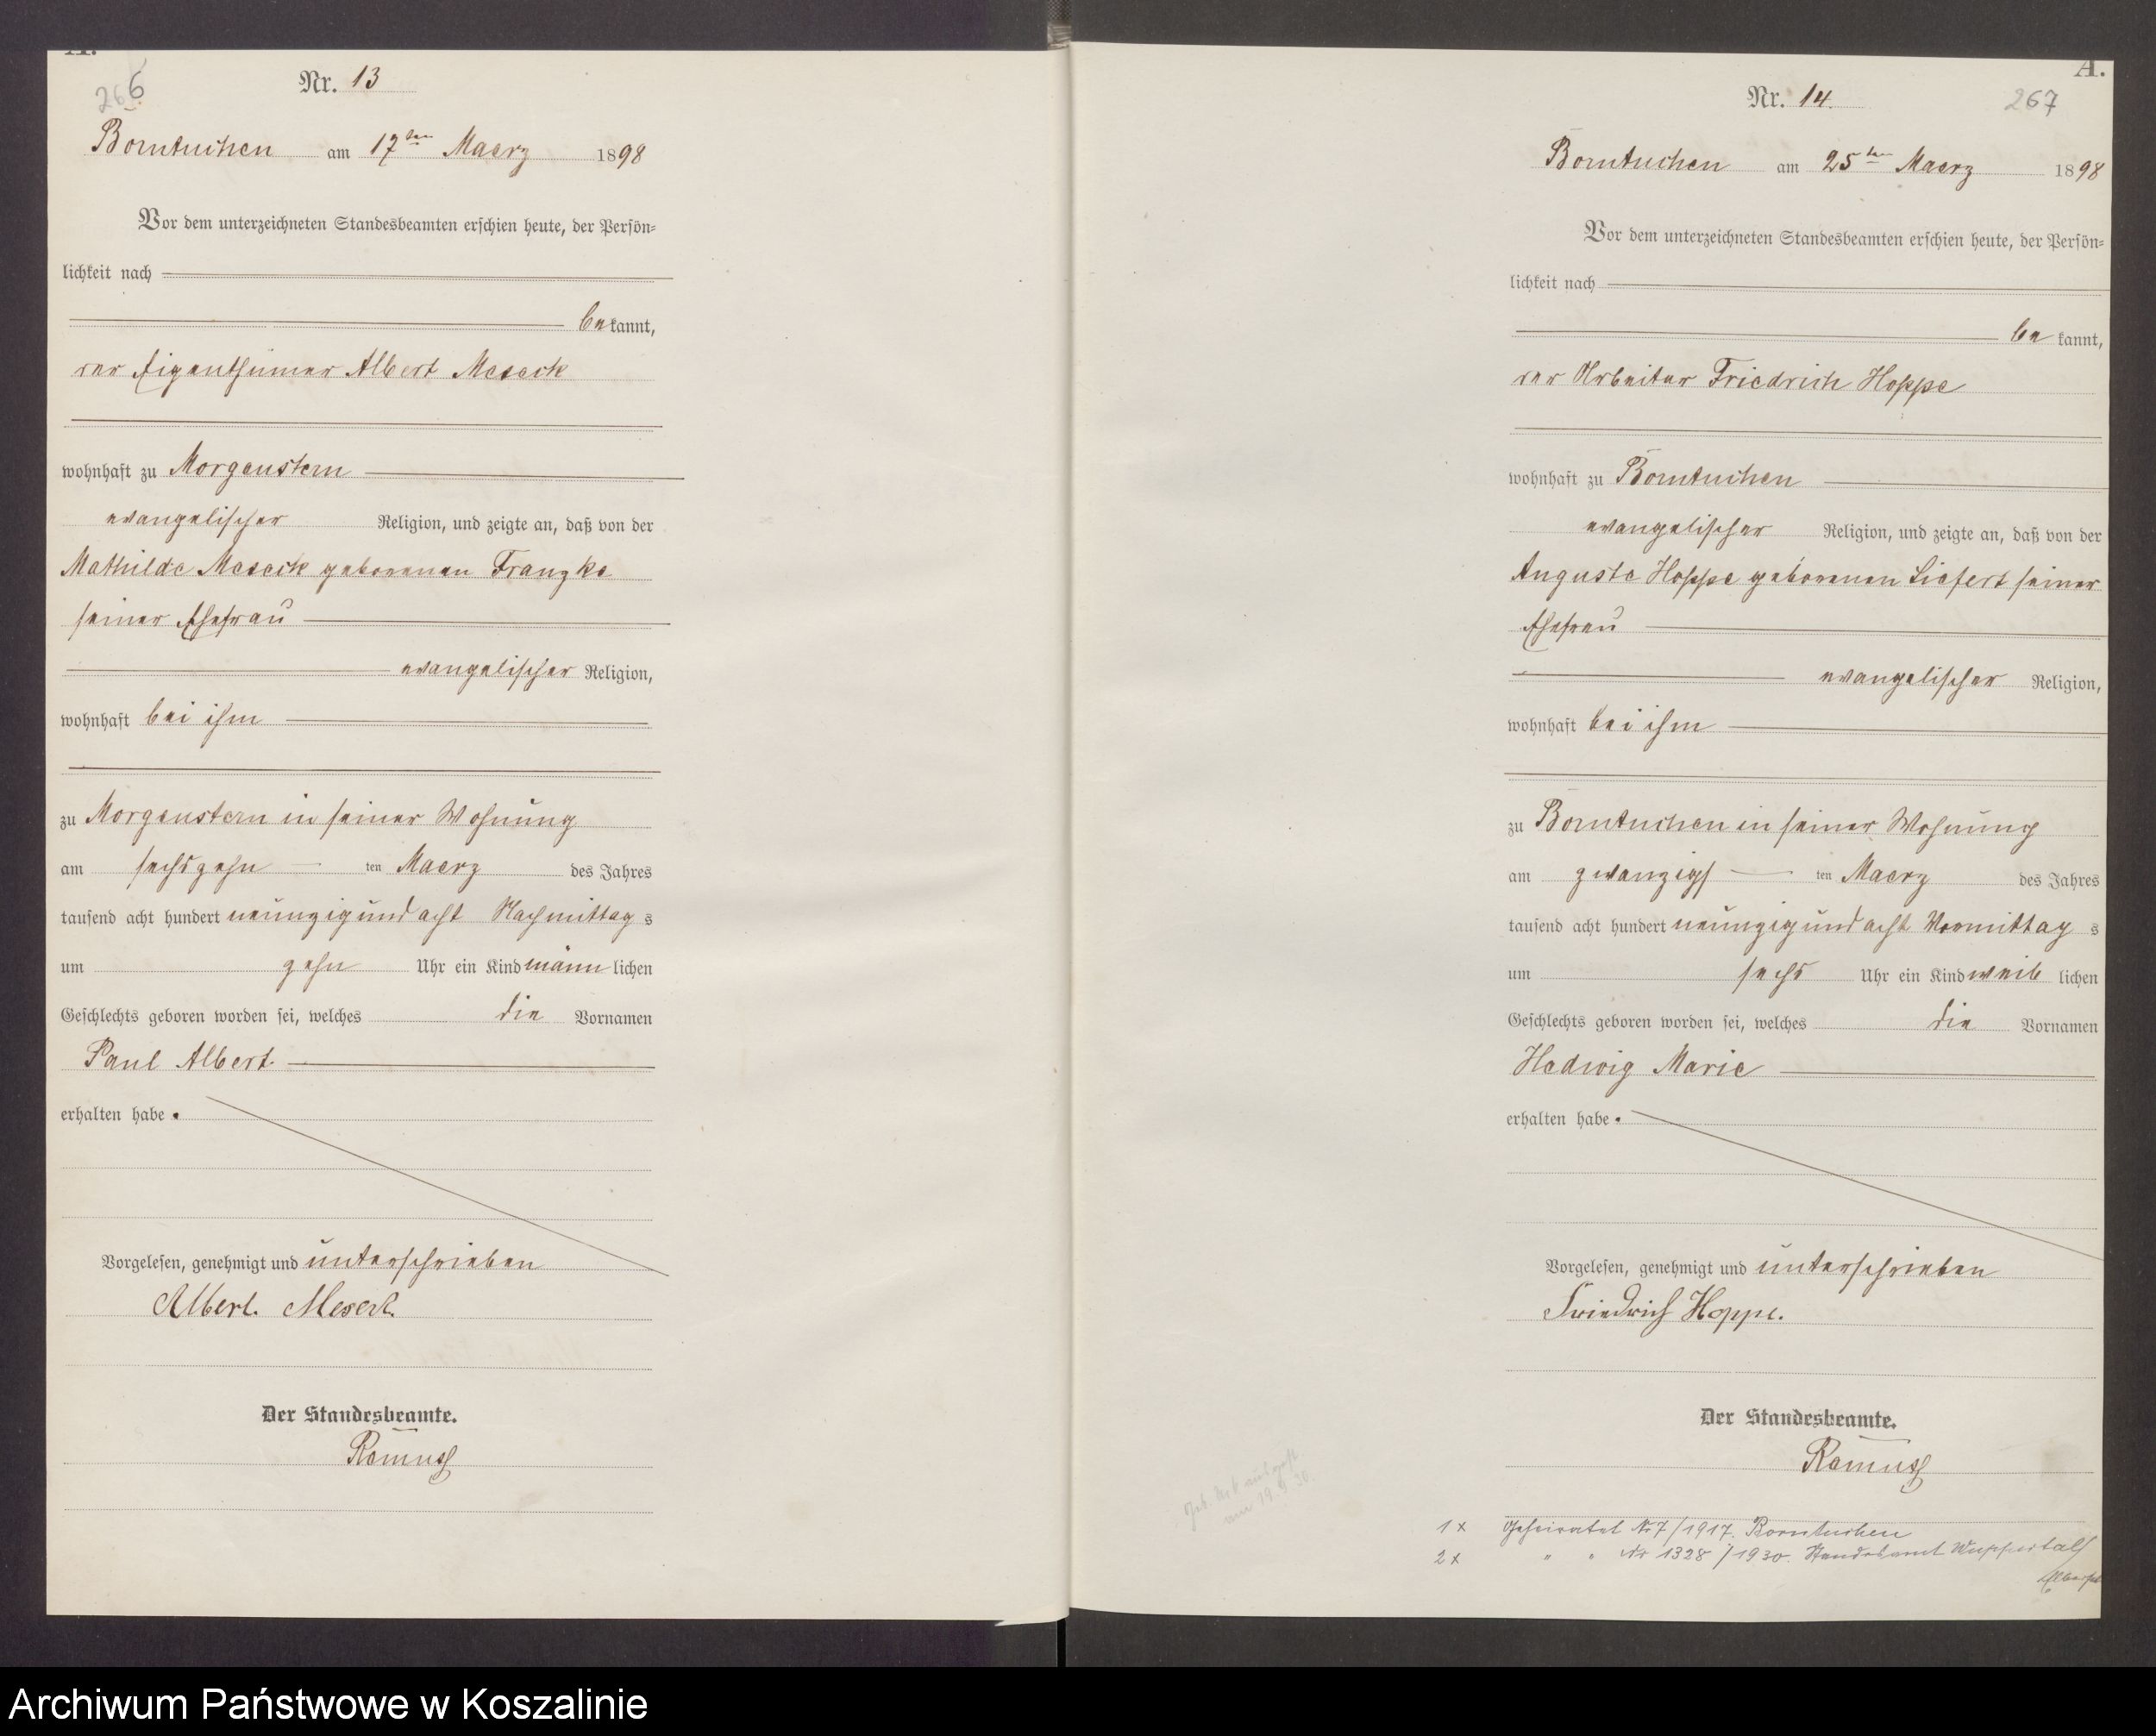 A.
266
Nr. 13
Borntuchen am 17ten Maerz 1898
Vor dem unterzeichneten Standesbeamten erschien heute, der Persön-
lichkeit nach
bekannt,
der Eigenthümer Albert Meseck
wohnhaft zu Morgenstern
evangelischer Religion, und zeigte an, daß von der
Mathilde Meseck geborenen Franzke
seiner Ehefrau
evangelischer Religion,
wohnhaft bei ihm
zu Morgenstern in seiner Wohnung
am sechszehn ten Maerz des Jahres
tausend acht hundert neunzig und acht Nachmittags
um zehn Uhr ein Kind männlichen
Geschlechts geboren worden sei, welches die Vornamen
Paul Albert
erhalten habe.
Vorgelesen, genehmigt und unterschrieben
Albert Meseck.
Der Standesbeamte.
Ramus
A.
267
Nr. 14
Borntuchen am 25ten Maerz 1898
Vor dem unterzeichneten Standesbeamten erschien heute, der Persön-
lichkeit nach
bekannt,
der Arbeiter Friedrich Hoppe
wohnhaft zu Borntuchen
evangelischer Religion, und zeigte an, daß von der
Auguste Hoppe geborenen Liefert seiner
Ehefrau
evangelischer Religion,
wohnhaft bei ihm
zu Borntuchen in seiner Wohnung
am zwanzigs ten Maerz des Jahres
tausend acht hundert neunzig und acht Vormittags
um sechs Uhr ein Kind weiblichen
Geschlechts geboren worden sei, welches die Vornamen
Hedwig Marie
erhalten habe.
Vorgelesen, genehmigt und unterschrieben
Friedrich Hoppe.
Der Standesbeamte.
Ramus
am 19.9.30.
1 x Geheiratet Nr 7/1917. Borntuchen
2 x " " Nr 1328/1930. Standesamt Wuppertal/
Elberfeld
Archiwum Państwowe w Koszalinie